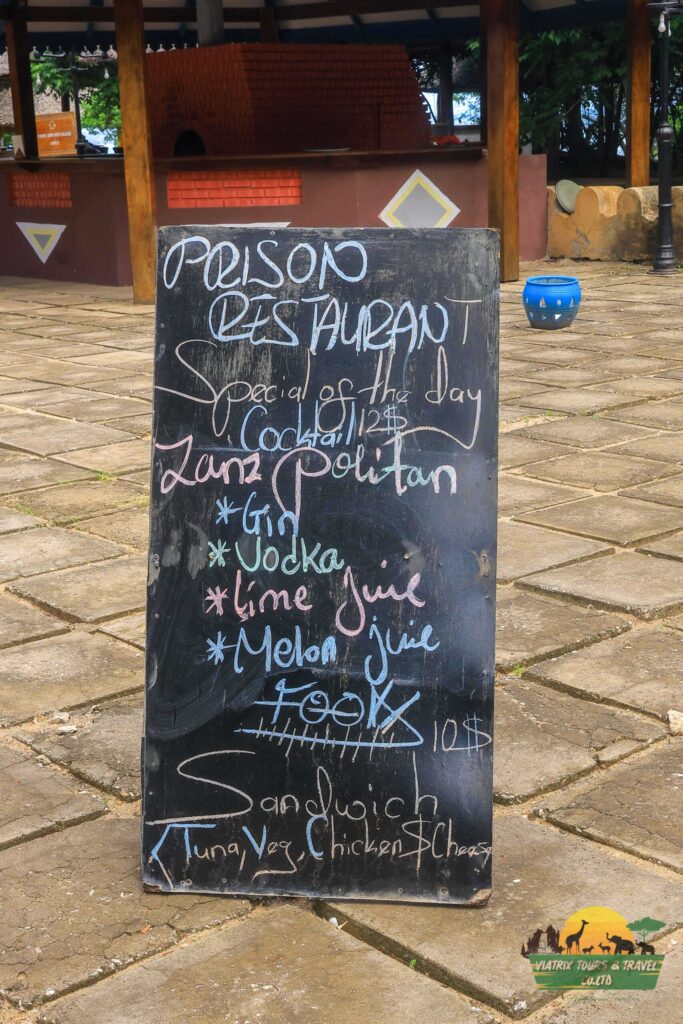 PRISON
RESTAURANT
Special of the day
Cocktail 12$
Zanz politan
*Gin
*Vodka
*Lime juice
*Melon juice
10$
Sandwich
(Tuna, Veg, Chicken $ Cheese
VIATRIX TOURS & TRAVEL
CO.LTD